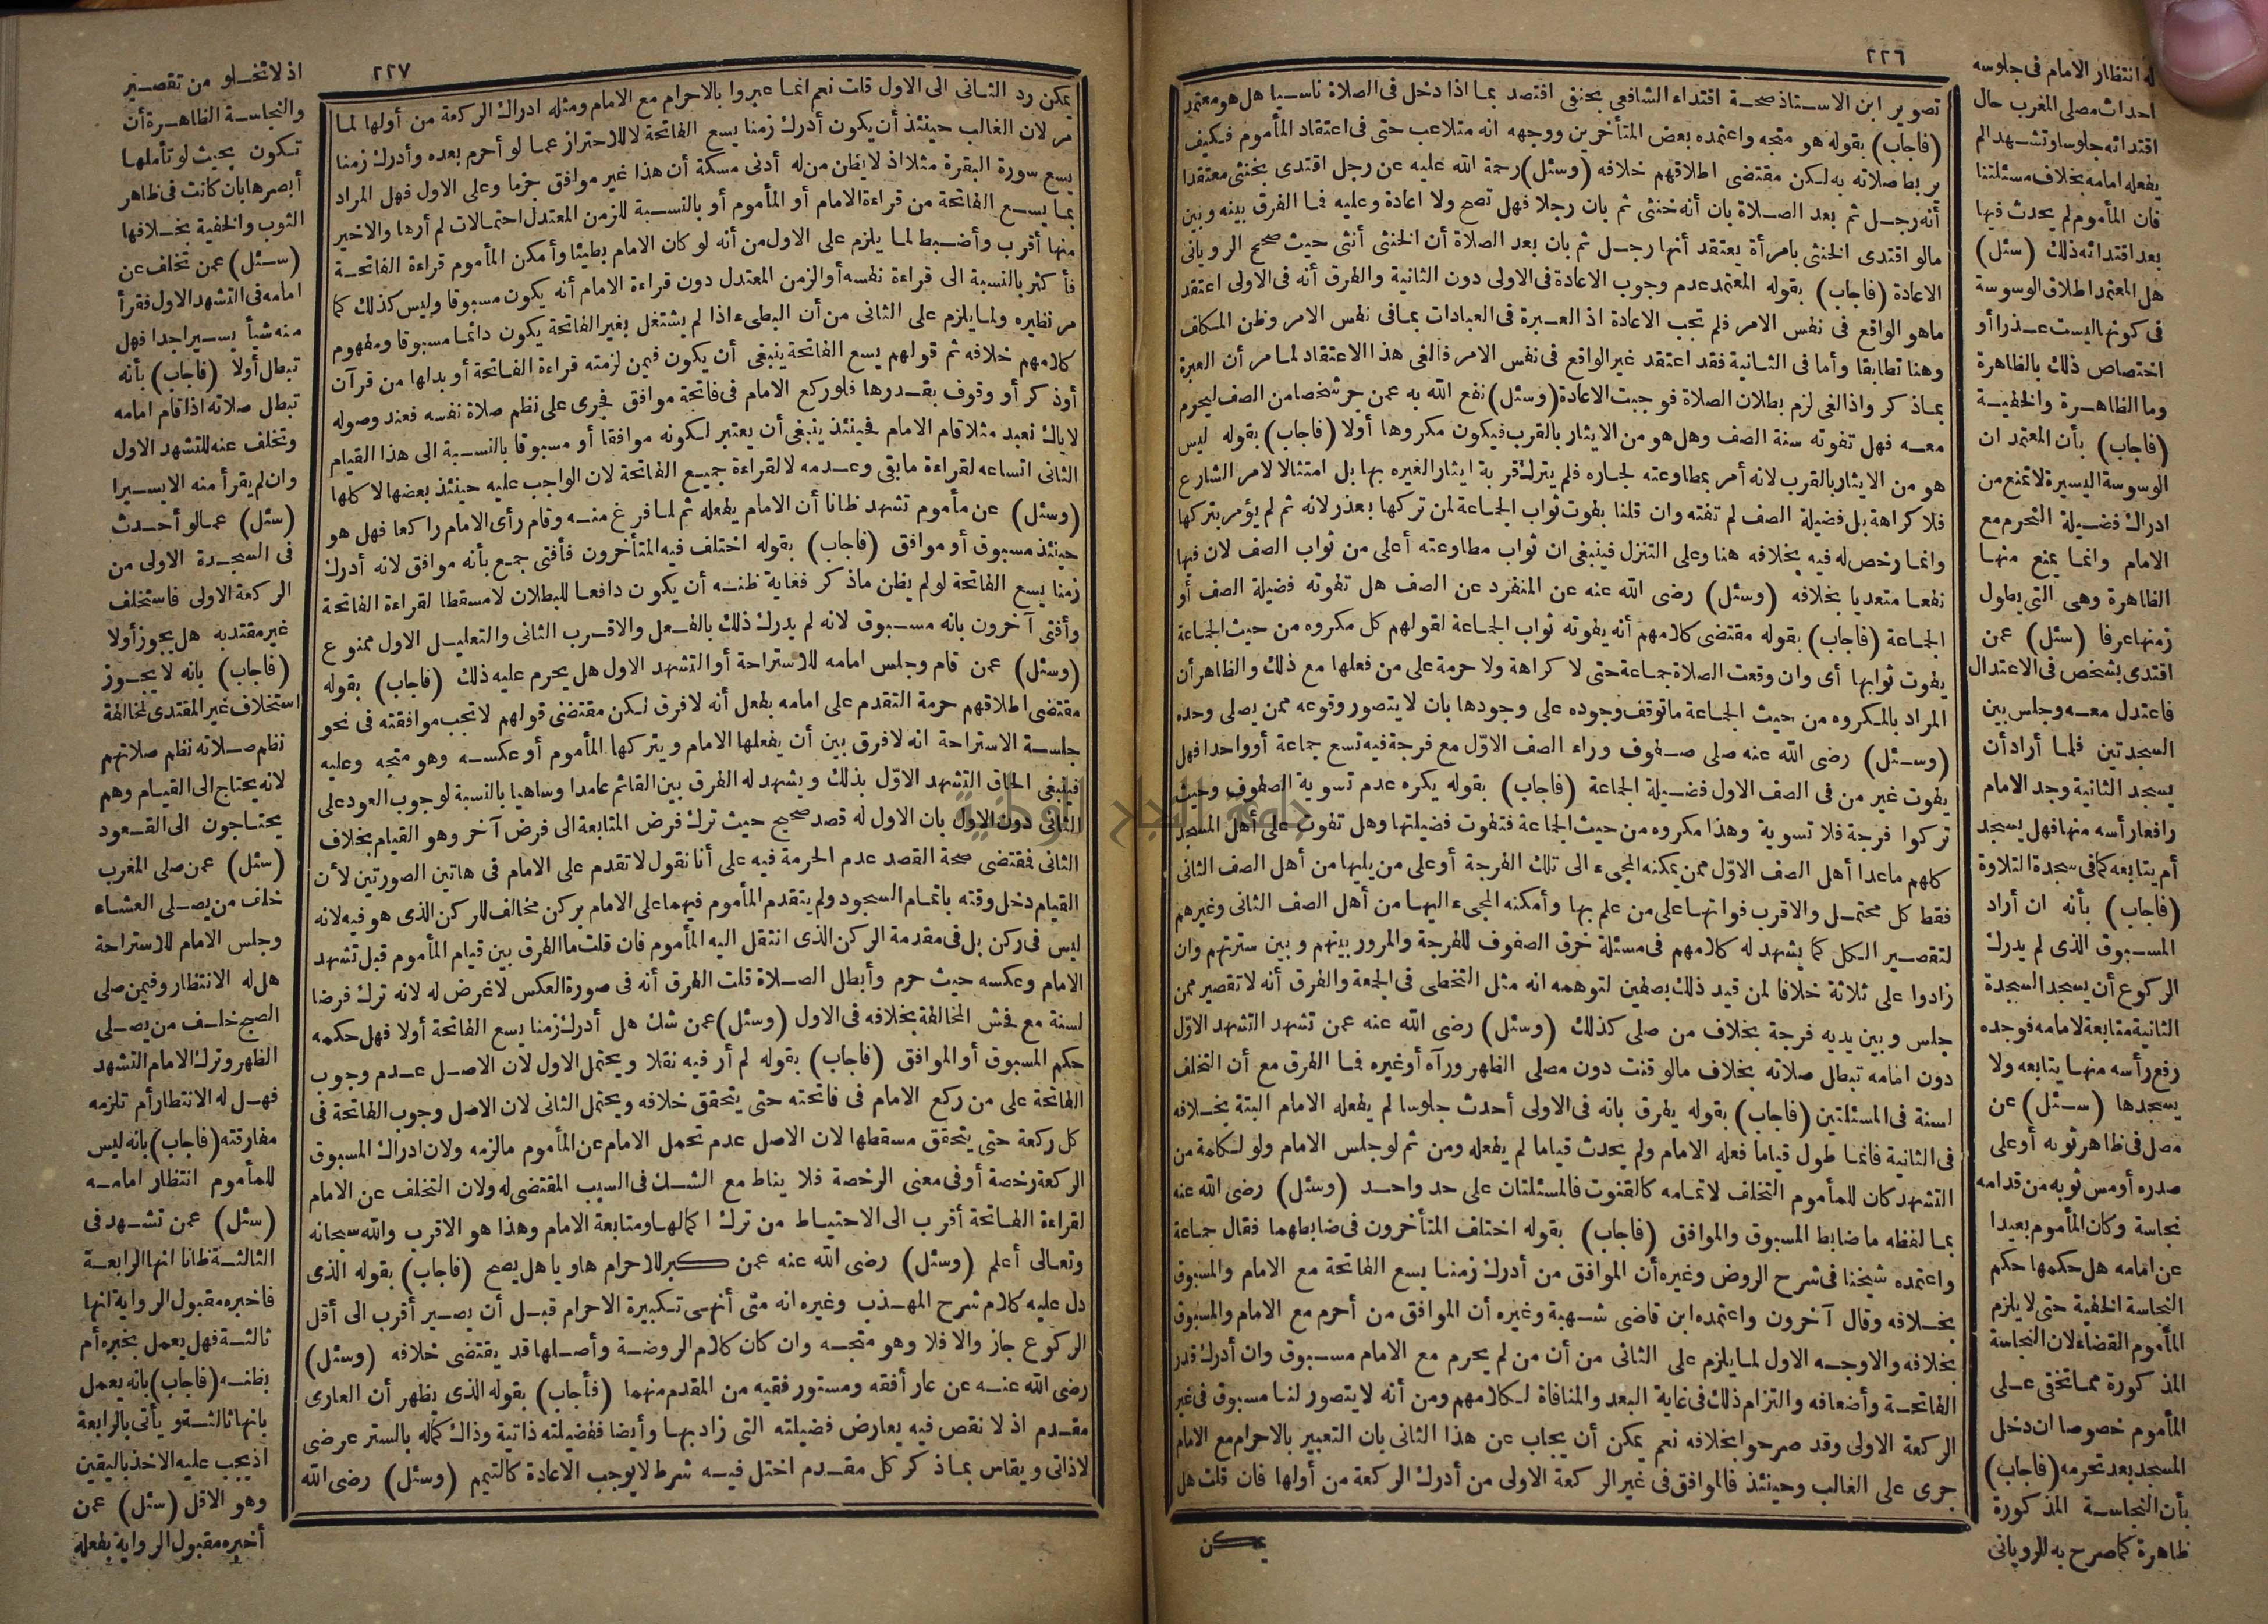 ٢٢٦
تصوير ابن الاستاذ صحة اقتداء الشافعي بحنفى افتصد بما اذا دخل فى الصلاة ناسيا هل هو معتمد
(فاجاب) بقوله هو متجه واعتمده بعض المتأخرين ووجهه انه متلاعب حتى فى اعتقاد المأموم فكيف
يربط صلاته به لكن مقتضى اطلاقهم خلافه (وسئل) رحمة الله عليه عن رجل اقتدى بخنثى معتقدا
أنه رجل ثم بعد الصلاة بان أنه خنثى ثم بان رجلا فهل تصح ولا اعادة وعليه فما الفرق بينه وبين
مالو اقتدى الخنثى بامرأة يعتقد أنها رجل ثم بان بعد الصلاة أن الخنثى أنثى حيث صحح الرويانى
الاعادة (فاجاب) بقوله المعتمد عدم وجوب الاعادة فى الاولى دون الثانية والفرق أنه فى الاولى اعتقد
ماهو الواقع فى نفس الامر فلم تجب الاعادة اذ العبرة فى العبادات بما فى نفس الامر وظن المكلف
وهنا تطابقا وأما فى الثانية فقد اعتقد غير الواقع فى نفس الامر فالغى هذا الاعتقاد لما مر أن العبرة
بماذكر واذا الغى لزم بطلان الصلاة فوجبت الاعادة (وسئل) نفع الله به عمن جر شخصا من الصف ليحرم
معه فهل تفوته سنة الصف وهل هو من الايثار بالقرب فيكون مكروها أولا (فاجاب) بقوله ليس
هو من الايثار بالقرب لانه أمر بمطاوعته لجاره فلم يترك قربة ايثارا لغيره بها بل امتثالا لامر الشارع
فلا كراهة بل فضيلة الصف لم تفته وان قلنا بفوت ثواب الجماعة لمن تركها بعذر لانه ثم لم يؤمر بتركها
وانما رخص له فيه بخلافه هنا وعلى التنزل فينبغى ان ثواب مطاوعته أعلى من ثواب الصف لان فيها
نفعا متعديا بخلافه (وسئل) رضى الله عنه عن المنفرد عن الصف هل تفوته فضيلة الصف أو
الجماعة (فاجاب) بقوله مقتضى كلامهم أنه يفوته ثواب الجماعة لقولهم كل مكروه من حيث الجماعة
يفوت ثوابها أى وان وقعت الصلاة جماعة حتى لا كراهة ولا حرمة على من فعلها مع ذلك والظاهر أن
المراد بالمكروه من حيث الجماعة ماتوقف وجوده على وجودها بان لا يتصور وقوعه ممن يصلى وحده
(وسئل) رضى الله عنه صلى صفوف وراء الصف الاوّل مع فرجة فيه تسع جماعة أو واحدا فهل
يفوت غير من فى الصف الاول فضيلة الجماعة (فاجاب) بقوله يكره عدم تسوية الصفوف وحيث
تركوا فرجة فلا تسوية وهذا مكروه من حيث الجماعة فتفوت فضيلتها وهل تفوت على أهل المسجد
كلهم ماعدا أهل الصف الاوّل ممن يمكنه المجىء الى تلك الفرجة أو على من يليها من أهل الصف الثانى
فقط كل محتمل والاقرب فواتها على من علم بها وأمكنه المجىء اليها من أهل الصف الثانى وغيرهم
لتقصير الكل كما يشهد له كلامهم فى مسئلة خرق الصفوف للفرجة والمرور بينهم وبين سترتهم وان
زادوا على ثلاثة خلافا لمن قيد ذلك بصفين لتوهمه انه مثل التخطى فى الجمعة والفرق أنه لا تقصير ممن
جلس وبين يديه فرجة بخلاف من صلى كذلك (وسئل) رضى الله عنه عمن تشهد التشهد الاوّل
دون امامه تبطل صلاته بخلاف مالو قنت دون مصلى الظهر وراه أو غيره فما الفرق مع أن التخلف
لسنة فى المسئلتين (فاجاب) بقوله يفرق بانه فى الاولى أحدث جلوسا لم يفعله الامام البتة بخلافه
فى الثانية فانما طول قياما فعله الامام ولم يحدث قياما لم يفعله ومن ثم لو جلس الامام ولو لكلمة من
التشهد كان للمأموم التخلف لاتمامه كالقنوت فالمسئلتان على حد واحد (وسئل) رضى الله عنه
بما لفظه ما ضابط المسبوق والموافق (فاجاب) بقوله اختلف المتأخرون فى ضابطهما فقال جماعة
واعتمده شيخنا فى شرح الروض وغيره أن الموافق من أدرك زمنا يسع الفاتحة مع الامام والمسبوق
بخلافه وقال آخرون واعتمده ابن قاضى شهبة وغيره أن الموافق من أحرم مع الامام والمسبوق
بخلافه والاوجه الاول لما يلزم على الثانى من أن من لم يحرم مع الامام مسبوق وان أدرك قدر
الفاتحة وأضعافه والتزام ذلك فى غاية البعد والمنافاة لكلامهم ومن أنه لا يتصور لنا مسبوق فى غير
الركعة الاولى وقد صرحوا بخلافه نعم يمكن أن يجاب عن هذا الثانى بان التعبير بالاحرام مع الامام
جرى على الغالب وحينئذ فالموافق فى غير الركعة الاولى من أدرك الركعة من أولها فان قلت هل
يمكن
له انتظار الامام فى جلوسه
احداث مصلى المغرب حال
اقتدائه جلوسا وتشهد الم
يفعله امامه بخلاف مسئلتنا
فان المأموم لم يحدث فيها
بعد اقتدائه ذلك (سئل)
هل المعتمد اطلاق الوسوسة
فى كونها ليست عذرا أو
اختصاص ذلك بالظاهرة
وما الظاهرة والخفية
(فاجاب) بأن المعتمد ان
الوسوسة اليسيرة لا تمنع من
ادراك فضيلة التحرم مع
الامام وانما يمنع منها
الظاهرة وهى التى يطول
زمنها عرفا (سئل) عمن
اقتدى بشخص فى الاعتدال
فاعتدل معه وجلس بين
السجدتين فلما أراد أن
يسجد الثانية وجد الامام
رافعا رأسه منها فهل يسجد
أم يتابعه كما فى سجدة التلاوة
(فاجاب) بأنه ان أراد
المسبوق الذى لم يدرك
الركوع أن يسجد السجدة
الثانية متابعة لامامه فوجده
رفع رأسه منها يتابعه ولا
يسجدها (سئل) عن
مصل فى ظاهر ثوبه أو على
صدره أو مس ثوبه من قدامه
نجاسة وكان المأموم بعيدا
عن امامه هل حكمها حكم
النجاسة الخفية حتى لا يلزم
المأموم القضاء لان النجاسة
المذكورة مما تخفى على
المأموم خصوصا ان دخل
المسجد بعد تحرمه (فاجاب)
بأن النجاسة المذكورة
ظاهرة كما صرح به الرويانى
٢٢٧
يمكن رد الثانى الى الاول قلت نعم انما عبروا بالاحرام مع الامام ومثله ادراك الركعة من أولها لما
مر لان الغالب حينئذ أن يكون أدرك زمنا يسع الفاتحة لا للاحتراز عما لو أحرم بعده وأدرك زمنا
يسع سورة البقرة مثلا اذ لا يظن من له أدنى مسكة أن هذا غير موافق جزما وعلى الاول فهل المراد
بما يسع الفاتحة من قراءة الامام أو المأموم أو بالنسبة للزمن المعتدل احتمالات لم أرها والاخير
منها أقرب وأضبط لما يلزم على الاول من أنه لو كان الامام بطيئا وأمكن المأموم قراءة الفاتحة
فأكثر بالنسبة الى قراءة نفسه أو الزمن المعتدل دون قراءة الامام أنه يكون مسبوقا وليس كذلك كما
مر نظيره ولما يلزم على الثانى من أن البطىء اذا لم يشتغل بغير الفاتحة يكون دائما مسبوقا ومفهوم
كلامهم خلافه ثم قولهم يسع الفاتحة ينبغى أن يكون فيمن لزمته قراءة الفاتحة أو بدلها من قرآن
أو ذكر أو وقوف بقدرها فلو ركع الامام فى فاتحة موافق فجرى على نظم صلاة نفسه فعند وصوله
لاياك نعبد مثلا قام الامام فحينئذ ينبغى أن يعتبر لكونه موافقا أو مسبوقا بالنسبة الى هذا القيام
الثانى اتساعه لقراءة ما بقى وعدمه لا لقراءة جميع الفاتحة لان الواجب عليه حينئذ بعضها لا كلها
(وسئل) عن مأموم تشهد ظانا أن الامام يفعله ثم لما فرغ منه وقام رأى الامام راكعا فهل هو
حينئذ مسبوق أو موافق (فاجاب) بقوله اختلف فيه المتأخرون فأفتى جمع بأنه موافق لانه أدرك
زمنا يسع الفاتحة لو لم يظن ماذكر فغاية ظنه أن يكون دافعا للبطلان لا مسقطا لقراءة الفاتحة
وأفتى آخرون بانه مسبوق لانه لم يدرك ذلك بالفعل والاقرب الثانى والتعليل الاول ممنوع
(وسئل) عمن قام وجلس امامه للاستراحة أو التشهد الاول هل يحرم عليه ذلك (فاجاب) بقوله
مقتضى اطلاقهم حرمة التقدم على امامه بفعل أنه لا فرق لكن مقتضى قولهم لا تجب موافقته فى نحو
جلسة الاستراحة انه لا فرق بين أن يفعلها الامام ويتركها المأموم أو عكسه وهو متجه وعليه
فينبغى الحاق التشهد الاوّل بذلك ويشهد له الفرق بين القائم عامدا وساهيا بالنسبة لوجوب العود على
الثانى دون الاول بان الاول له قصد صحيح حيث ترك فرض المتابعة الى فرض آخر وهو القيام بخلاف
الثانى فقتضى صحة القصد عدم الحرمة فيه على أنا نقول لا تقدم على الامام فى هاتين الصورتين لأن
القيام دخل وقته باتمام السجود ولم يتقدم المأموم فيهما على الامام بركن مخالف للركن الذى هو فيه لانه
ليس فى ركن بل فى مقدمة الركن الذى انتقل اليه المأموم فان قلت ما الفرق بين قيام المأموم قبل تشهد
الامام وعكسه حيث حرم وأبطل الصلاة قلت الفرق أنه فى صورة العكس لا غرض له لانه ترك فرضا
لسنة مع فحش المخالفة بخلافه فى الاول (وسئل) عمن شك هل أدرك زمنا يسع الفاتحة أولا فهل حكمه
حكم المسبوق أو الموافق (فاجاب) بقوله لم أر فيه نقلا ويحتمل الاول لان الاصل عدم وجوب
الفاتحة على من ركع الامام فى فاتحته حتى يتحقق خلافه ويحتمل الثانى لان الاصل وجوب الفاتحة فى
كل ركعة حتى يتحقق مسقطها لان الاصل عدم تحمل الامام عن المأموم مالزمه ولان ادراك المسبوق
الركعة رخصة أو فى معنى الرخصة فلا يناط مع الشك فى السبب المقتضى له ولان التخلف عن الامام
لقراءة الفاتحة أقرب الى الاحتياط من ترك اكمالها ومتابعة الامام وهذا هو الاقرب والله سبحانه
وتعالى أعلم (وسئل) رضى الله عنه عمن كبر للاحرام هاويا هل يصح (فاجاب) بقوله الذى
دل عليه كلام شرح المهذب وغيره انه متى أنهى تكبيرة الاحرام قبل أن يصير أقرب الى أقل
الركوع جاز والا فلا وهو متجه وان كان كلام الروضة وأصلها قد يقتضى خلافه (وسئل)
رضى الله عنه عن عار أفقه ومستور فقيه من المقدم منهما (فأجاب) بقوله الذى يظهر أن العارى
مقدم اذ لا نقص فيه يعارض فضيلته التى زاد بها وأيضا ففضيلته ذاتية وذاك كماله بالستر عرضى
لا ذاتى ويقاس بماذكر كل مقدم اختل فيه شرط لا يوجب الاعادة كالتيمم (وسئل) رضى الله
اذ لا تخلو من تقصير
والنجاسة الظاهرة أن
تكون بحيث لو تأملها
أبصرها بان كانت فى ظاهر
الثوب والخفية بخلافها
(سئل) عمن تخلف عن
امامه فى التشهد الاول فقرأ
منه شيأ يسيرا جدا فهل
تبطل أولا (فاجاب) بأنه
تبطل صلاته اذا قام امامه
وتخلف عنه للتشهد الاول
وان لم يقرأ منه الا يسيرا
(سئل) عمالو أحدث
فى السجدة الاولى من
الركعة الاولى فاستخلف
غير مقتد به هل يجوز أولا
(فاجاب) بانه لا يجوز
استخلاف غير المقتدى لمخالفة
نظم صلاته نظم صلاتهم
لانه يحتاج الى القيام وهم
يحتاجون الى القعود
(سئل) عمن صلى المغرب
خلف من يصلى العشاء
وجلس الامام للاستراحة
هل له الانتظار وفيمن صلى
الصبح خلف من يصلى
الظهر وترك الامام التشهد
فهل له الانتظار أم تلزمه
مفارقته (فاجاب) بانه ليس
للمأموم انتظار امامه
(سئل) عمن تشهد فى
الثالثة ظانا انها الرابعة
فاخبره مقبول الرواية انها
ثالثة فهل يعمل بخبره أم
بظنه (فاجاب) بانه يعمل
بانها ثالثة ويأتى بالرابعة
اذ يجب عليه الاخذ باليقين
وهو الاقل (سئل) عمن
أخبره مقبول الرواية بفعله